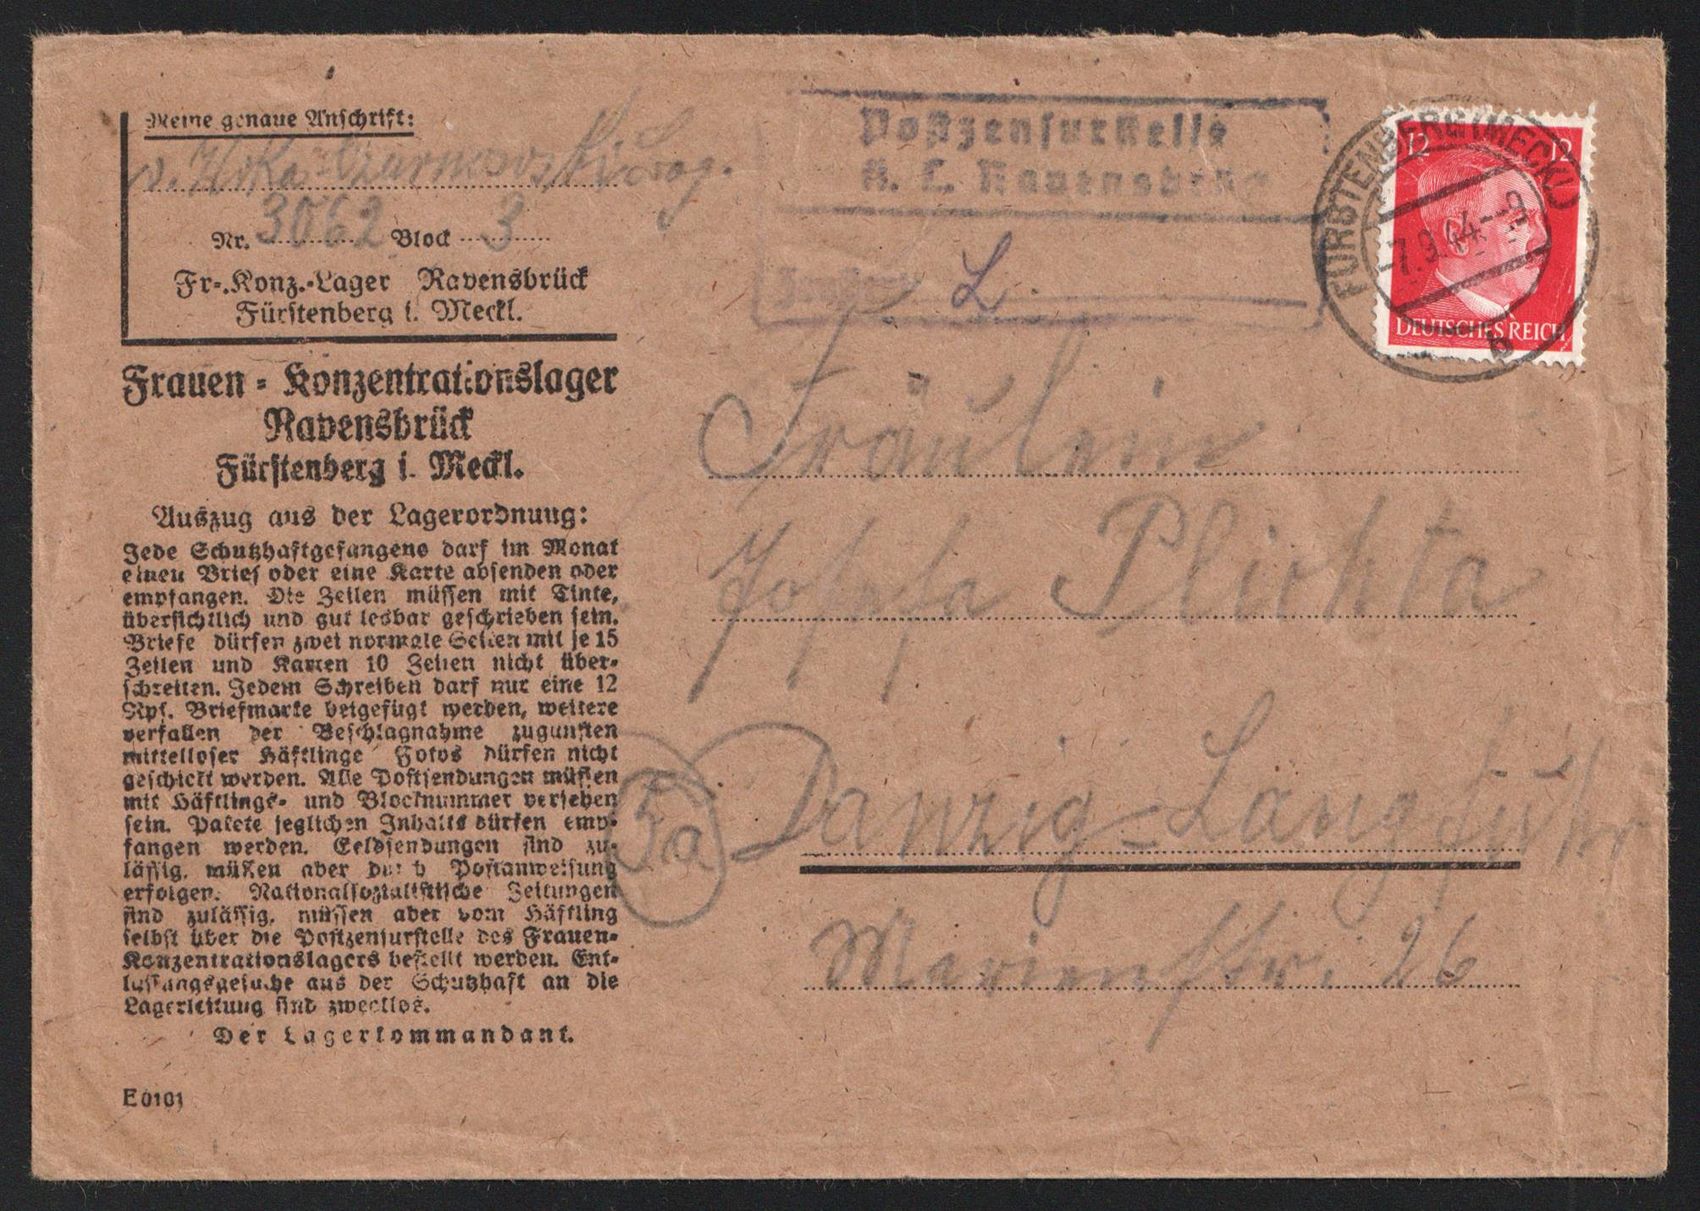 Meine genaue Anschrift:
Nr. 3062 Block 3
Fr-.Konz.-Lager Ravensbrück
Fürstenberg i. Meckl.
Frauen-Konzentrationslager
Ravensbrück
Fürstenberg i. Meckl.
Auszug aus der Lagerordnung:
Jede Schutzhaftgefangene darf im Monat
einen Brief oder eine Karte absenden oder
empfangen. Die Zeilen müssen mit Tinte,
übersichtlich und gut lesbar geschrieben sein.
Briefe dürfen zwei normale Seiten mit je 15
Zeilen und Karten 10 Zeilen nicht über-
schreiten. Jedem Schreiben darf nur eine 12
Rpf. Briefmarke beigefügt werden, weitere
verfallen der Beschlagnahme zugunsten
mittelloser Häftlinge Fotos dürfen nicht
geschickt werden. Alle Postsendungen müssen
mit Häftlings- und Blocknummer versehen
sein. Pakete jeglichen Inhalts dürfen emp-
fangen werden. Geldsendungen sind zu-
lässig, müßen aber durch Postanweisung
erfolgen. Nationalsozialistische Zeitungen
sind zulässig, müssen aber vom Häftling
selbst über die Postzensurstelle des Frauen-
Konzentrationslagers bestellt werden. Ent-
lassungsgesuche aus der Schutzhaft an die
Lagerleitung sind zwecklos.
Der Lagerkommandant.
E0101
Postzensurstelle
K. L. Ravensbrück
L.
FÜRSTENBERG (MECKL)
-7.9.44.--9
b
12 12
DEUTSCHES REICH
Fräulein
Plichta
5a
Danzig-Langfuhr
Marienstr. 26